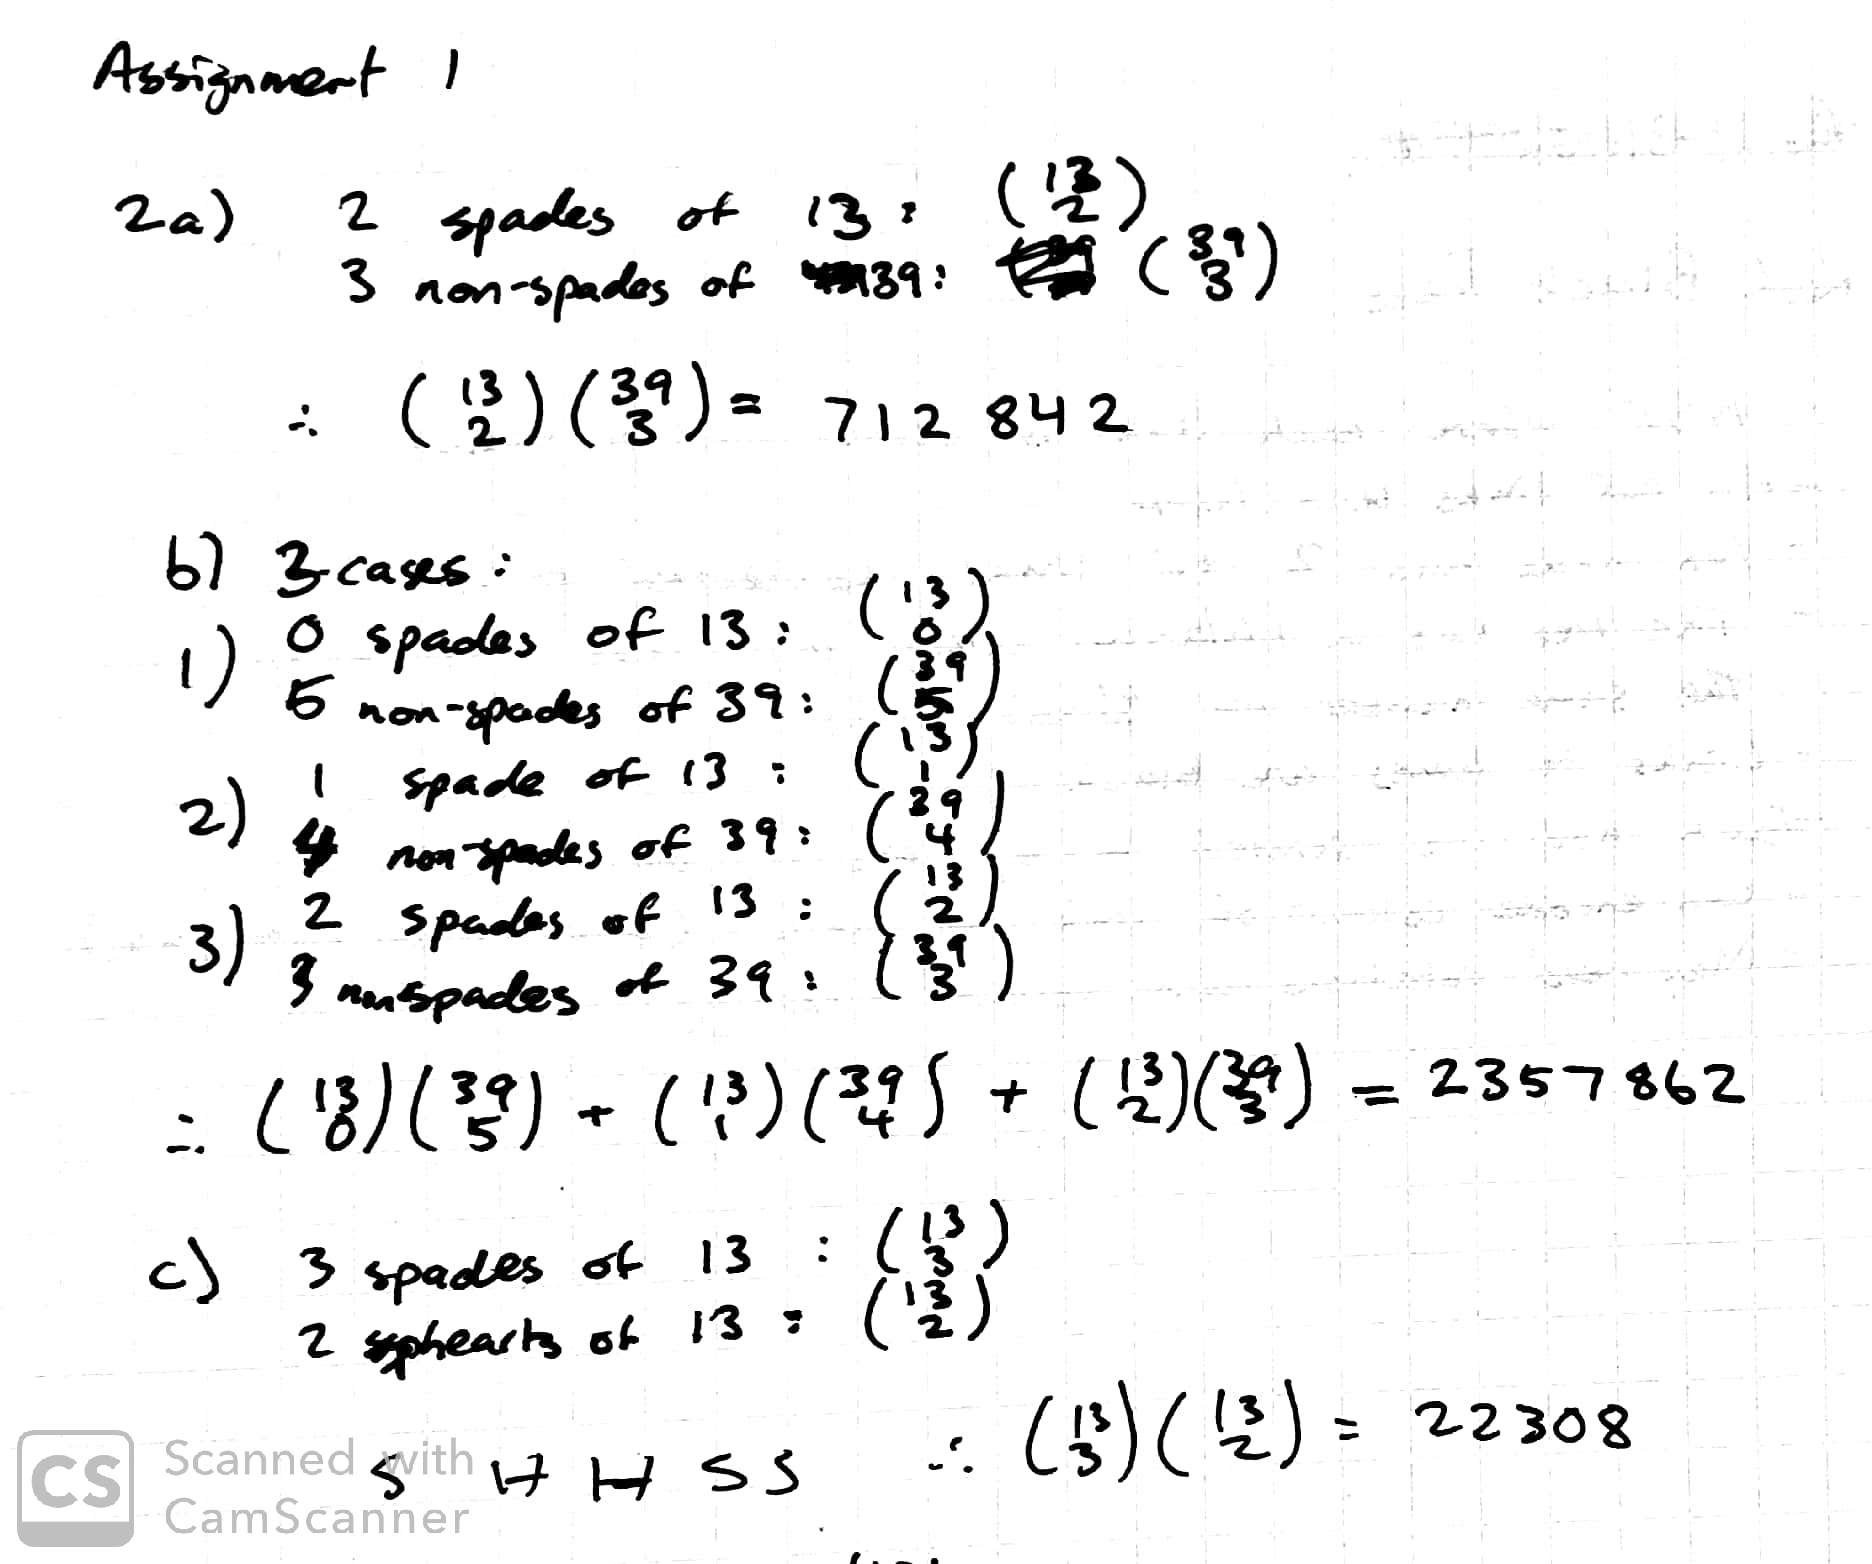 Assignment 1
2a) 2 spades of 13: (13 2)
3 non-spades of 39: (39 3)
∴ (13 2)(39 3) = 712 842
b) 3 cases:
1) 0 spades of 13: (13 0)
5 non-spades of 39: (39 5)
2) 1 spade of 13: (13 1)
4 non-spades of 39: (39 4)
3) 2 spades of 13: (13 2)
3 nonspades of 39: (39 3)
∴ (13 0)(39 5) + (13 1)(39 4) + (13 2)(39 3) = 2357 862
c) 3 spades of 13: (13 3)
2 hearts of 13: (13 2)
S H H S S ∴ (13 3)(13 2) = 22308
CS Scanned with
CamScanner